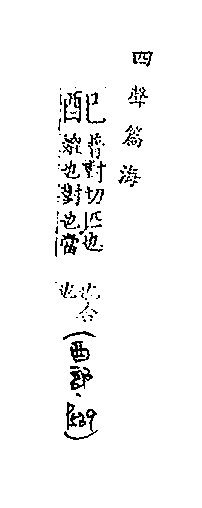 四聲篇海
配
普對切匹也
媲也對也當
也合
也
(酉部、P529)